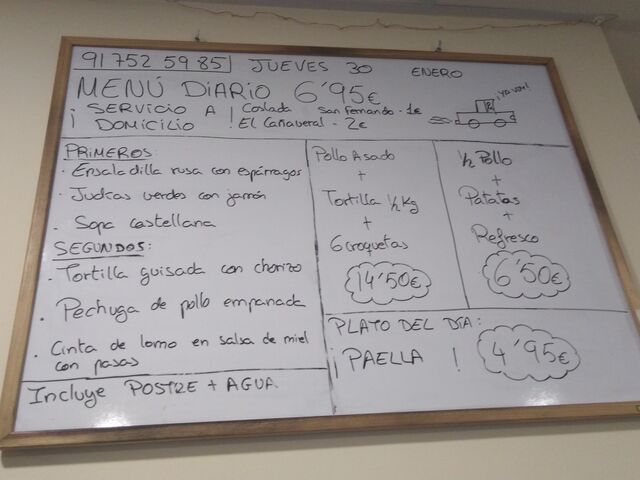 91 752 59 85 JUEVES 30 ENERO
MENÚ DIARIO 6'95€
¡SERVICIO A DOMICILIO!
Coslada San Fernando - 1€
El Cañaveral - 2€
¡Ya voy!
PRIMEROS:
· Ensaladilla rusa con espárragos
· Judías verdes con jamón
· Sopa castellana
SEGUNDOS:
· Tortilla guisada con chorizo
· Pechuga de pollo empanada
· Cinta de lomo en salsa de miel
con pasas
Incluye POSTRE + AGUA.
Pollo Asado
+
Tortilla ½ Kg
+
6 croquetas
14'50€
½ Pollo
+
Patatas
+
Refresco
6'50€
PLATO DEL DÍA:
¡PAELLA!
4'95€